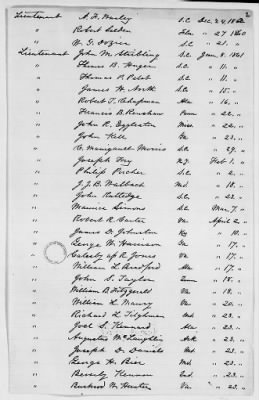 Lieutenant A. F. Warley S.C. Dec 24, 1860
" Robert Selden Fla " 27 1860
" W. G. Dozier S.C. " 21. "
Lieutenant John M. Stribling S.C. Jany 8. 1861
" Thomas B. Huger S.C. " 11. "
" Thomas P. Pelot S.C. " 11. "
" James H. North S.C. " 15. "
" Robert T. Chapman Ala " 16. "
" Francis B. Renshaw Penn " 22. "
" John R. Eggleston Miss " 22. "
" John Kell Ga " 23. "
" C. Manigault Morris S.C. " 29. "
" Joseph Fry N.Y. Feb 1. "
" Philip Porcher S.C. " 2. "
" J. J. B. Walbach Md " 18. "
" John Rutledge S.C. " 22. "
" Maurice Simons S.C. Mar 7. "
" Robert R. Carter Va April 2. "
" James D. Johnston Ky " 10. "
" George W. Harrison Va " 17. "
" Catesby ap R Jones Va " 17. "
" William L. Bradford Ala " 17. "
" John S. Taylor Tenn " 18. "
" William B. Fitzgerald Va " 18. "
" William L. Maury Va " 20. "
" Richard L. Tilghman Md " 23. "
" Joel S. Kennard Ala " 23. "
" Augustus McLaughlin Ark " 23. "
" Joseph D. Daniels Md " 23. "
" George H. Bier Md " 23. "
" Beverly Kennon " 23. "
" Bushrod W. Hunter Va " 23. "